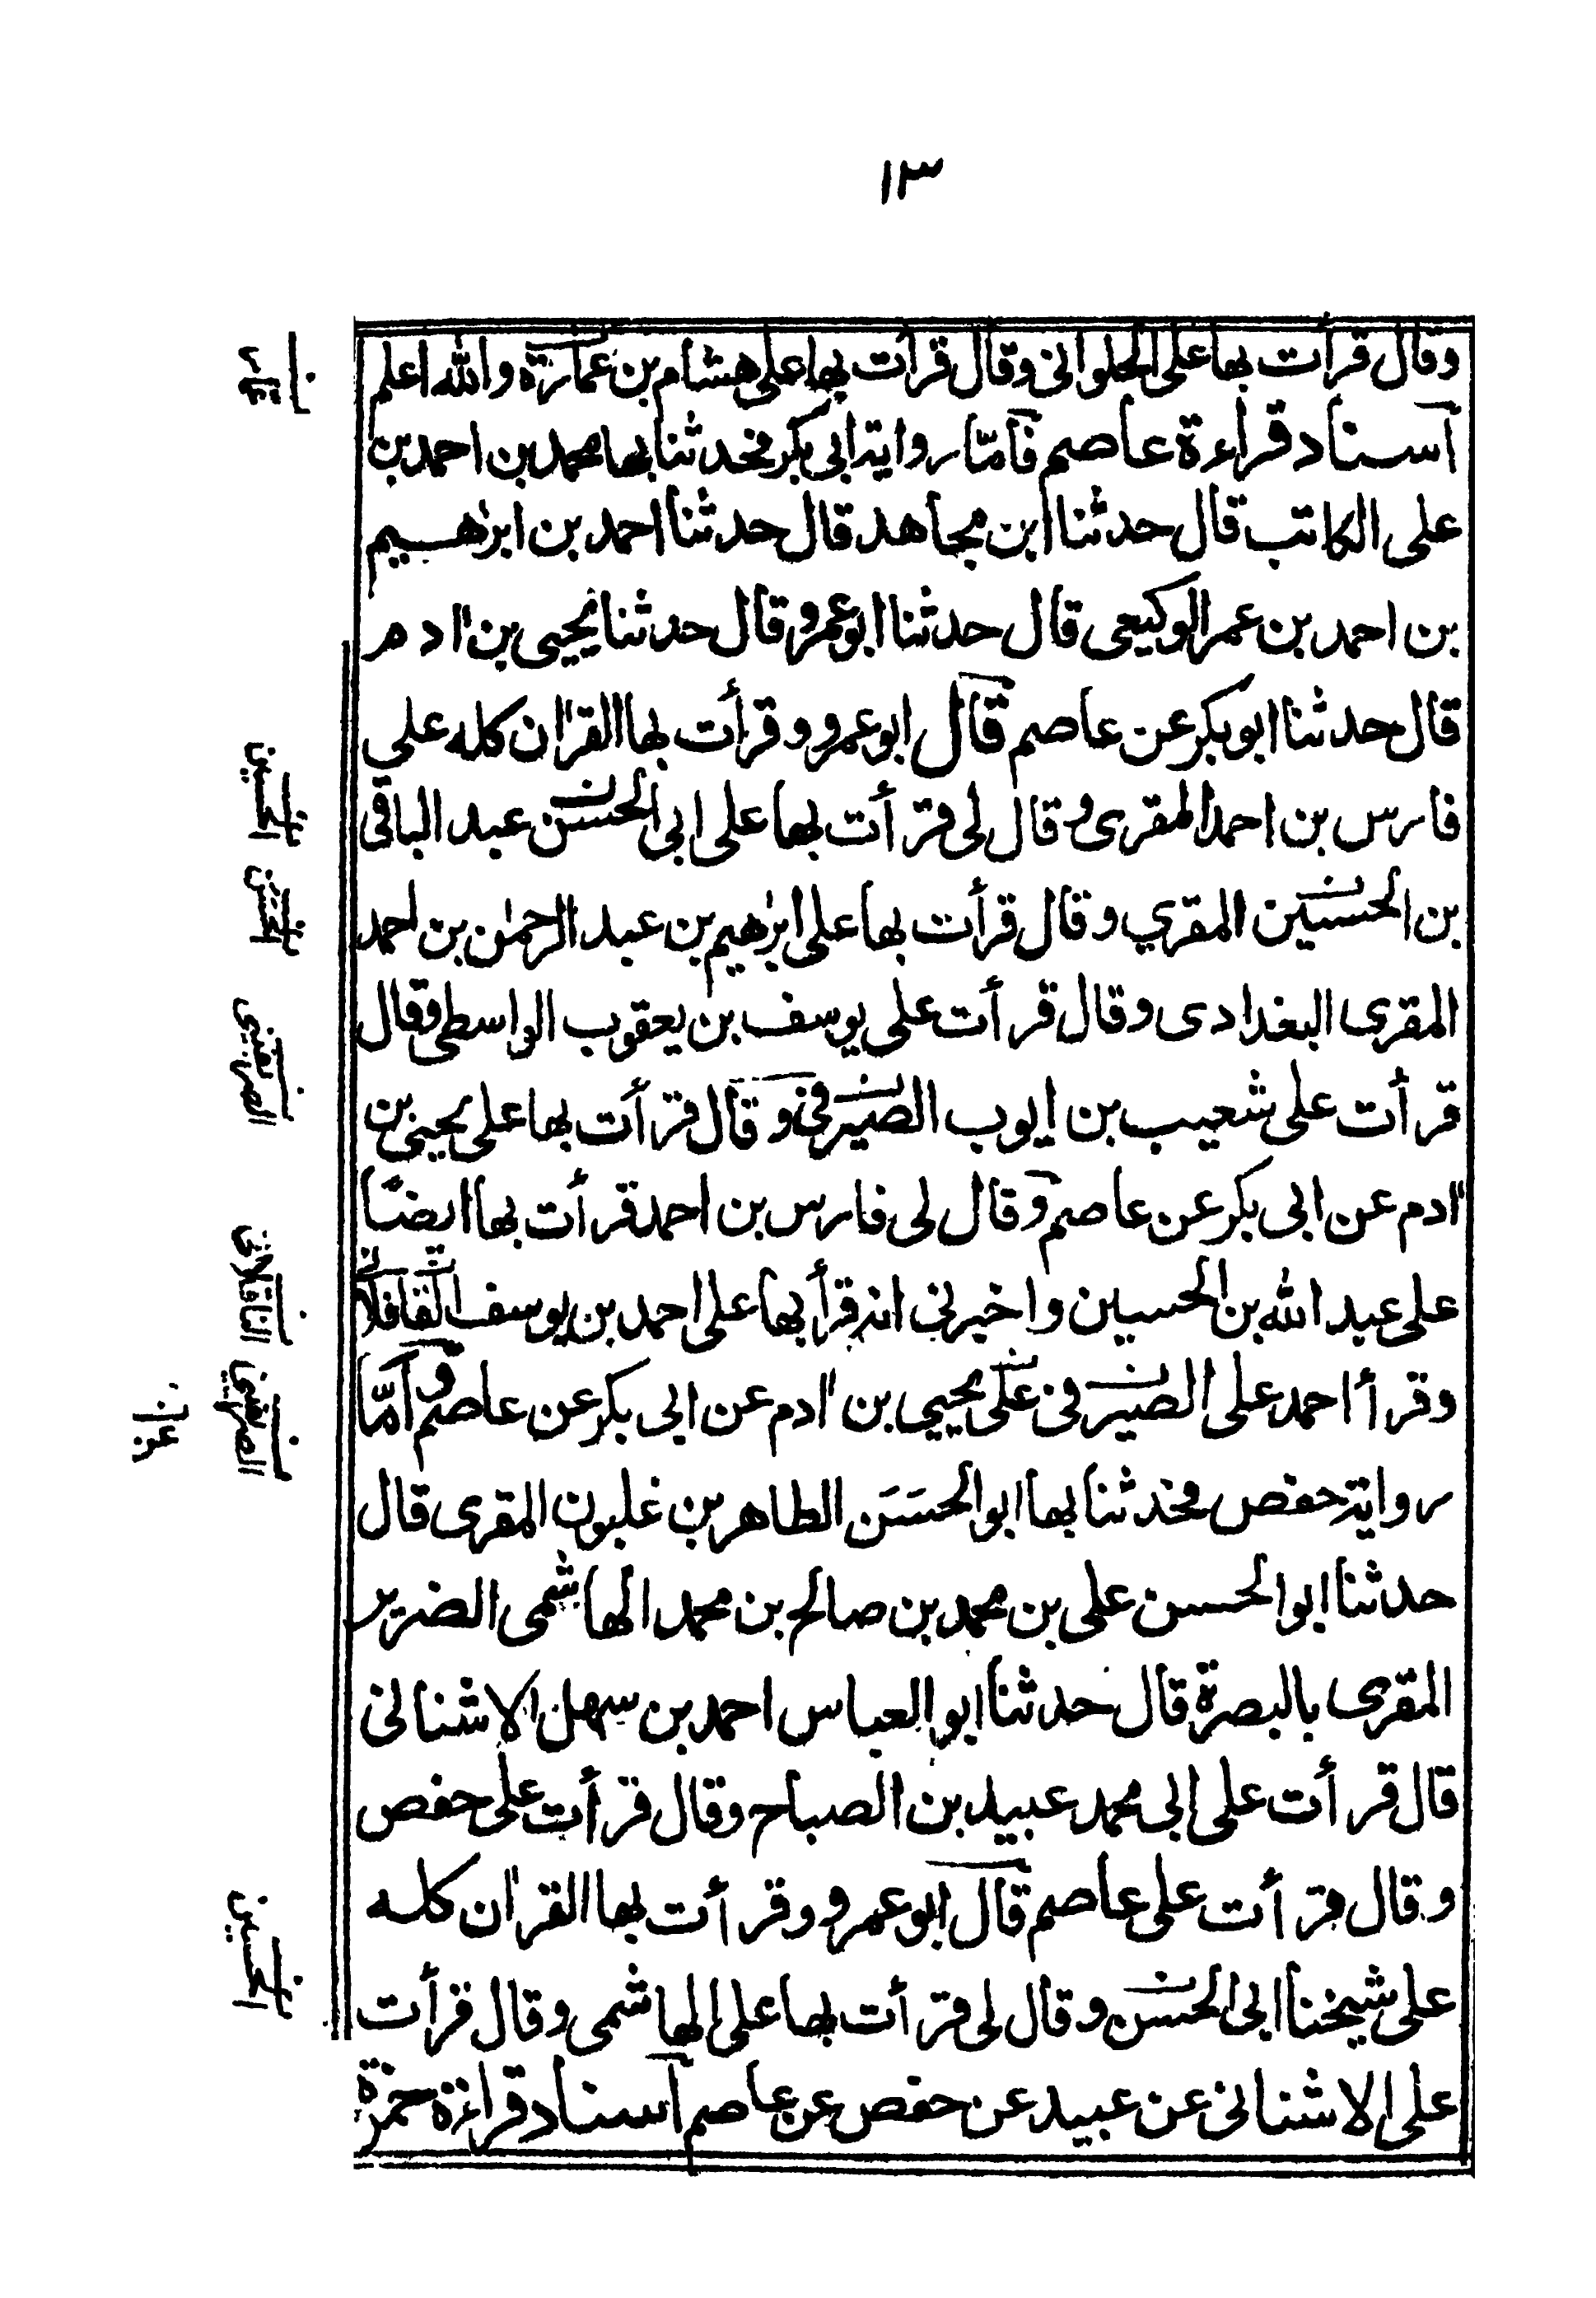 ١٣
وقال قرأت بها على الحلوانى وقال قرأت بها على هشام بن عمارة والله اعلم
اسناد قراءة عاصم فأمّا رواية ابى بكر فحدثنا بها محمد بن احمد بن
على الكاتب قال حدثنا ابن مجاهد قال حدثنا احمد بن ابرٰهيم
بن احمد بن عمر الوكيعى قال حدثنا ابو عمرو قال حدثنا يحيى بن اٰدم
قال حدثنا ابو بكر عن عاصم قال ابو عمرو وقرأت بها القراٰن كله على
فارس بن احمد المقرى وقال لى قرأت بها على ابى الحسن عبد الباقى
بن الحسين المقري وقال قرأت بها على ابرٰهيم بن عبد الرحمٰن بن احمد
المقرى البغدادى وقال قرأت على يوسف بن يعقوب الواسطى وقال
قرأت على شعيب بن ايوب الصيرفى وقال قرأت بها على يحيىٰ بن
اٰدم عن ابى بكر عن عاصم وقال لى فارس بن احمد قرأت بها ايضًا
على عبد الله بن الحسين واخبرنى انه قرأ بها على احمد بن يوسف القافلانى
وقرأ احمد على الصيرفى على يحيى بن اٰدم عن ابى بكر عن عاصم وأمّا
رواية حفص فحدثنا بها ابو الحسَن الطاهر بن غلبون المقرى قال
حدثنا ابو الحسن على بن محمد بن صالح بن محمد الهاشمى الضرير
المقرى بالبصرة قال حدثنا ابو العباس احمد بن سهل الاشنانى
قال قرأت على ابى محمد عبيد بن الصباح وقال قرأت على حفص
وقال قرأت على عاصم قال ابو عمرو وقرأت بها القراٰن كله
على شيخنا ابى الحسن وقال لى قرأت بها على الهاشمى وقال قرأت
على الاشنانى عن عبيد عن حفص عن عاصم اسناد قراءة حمزة
الحسين
الحسن
الحسين